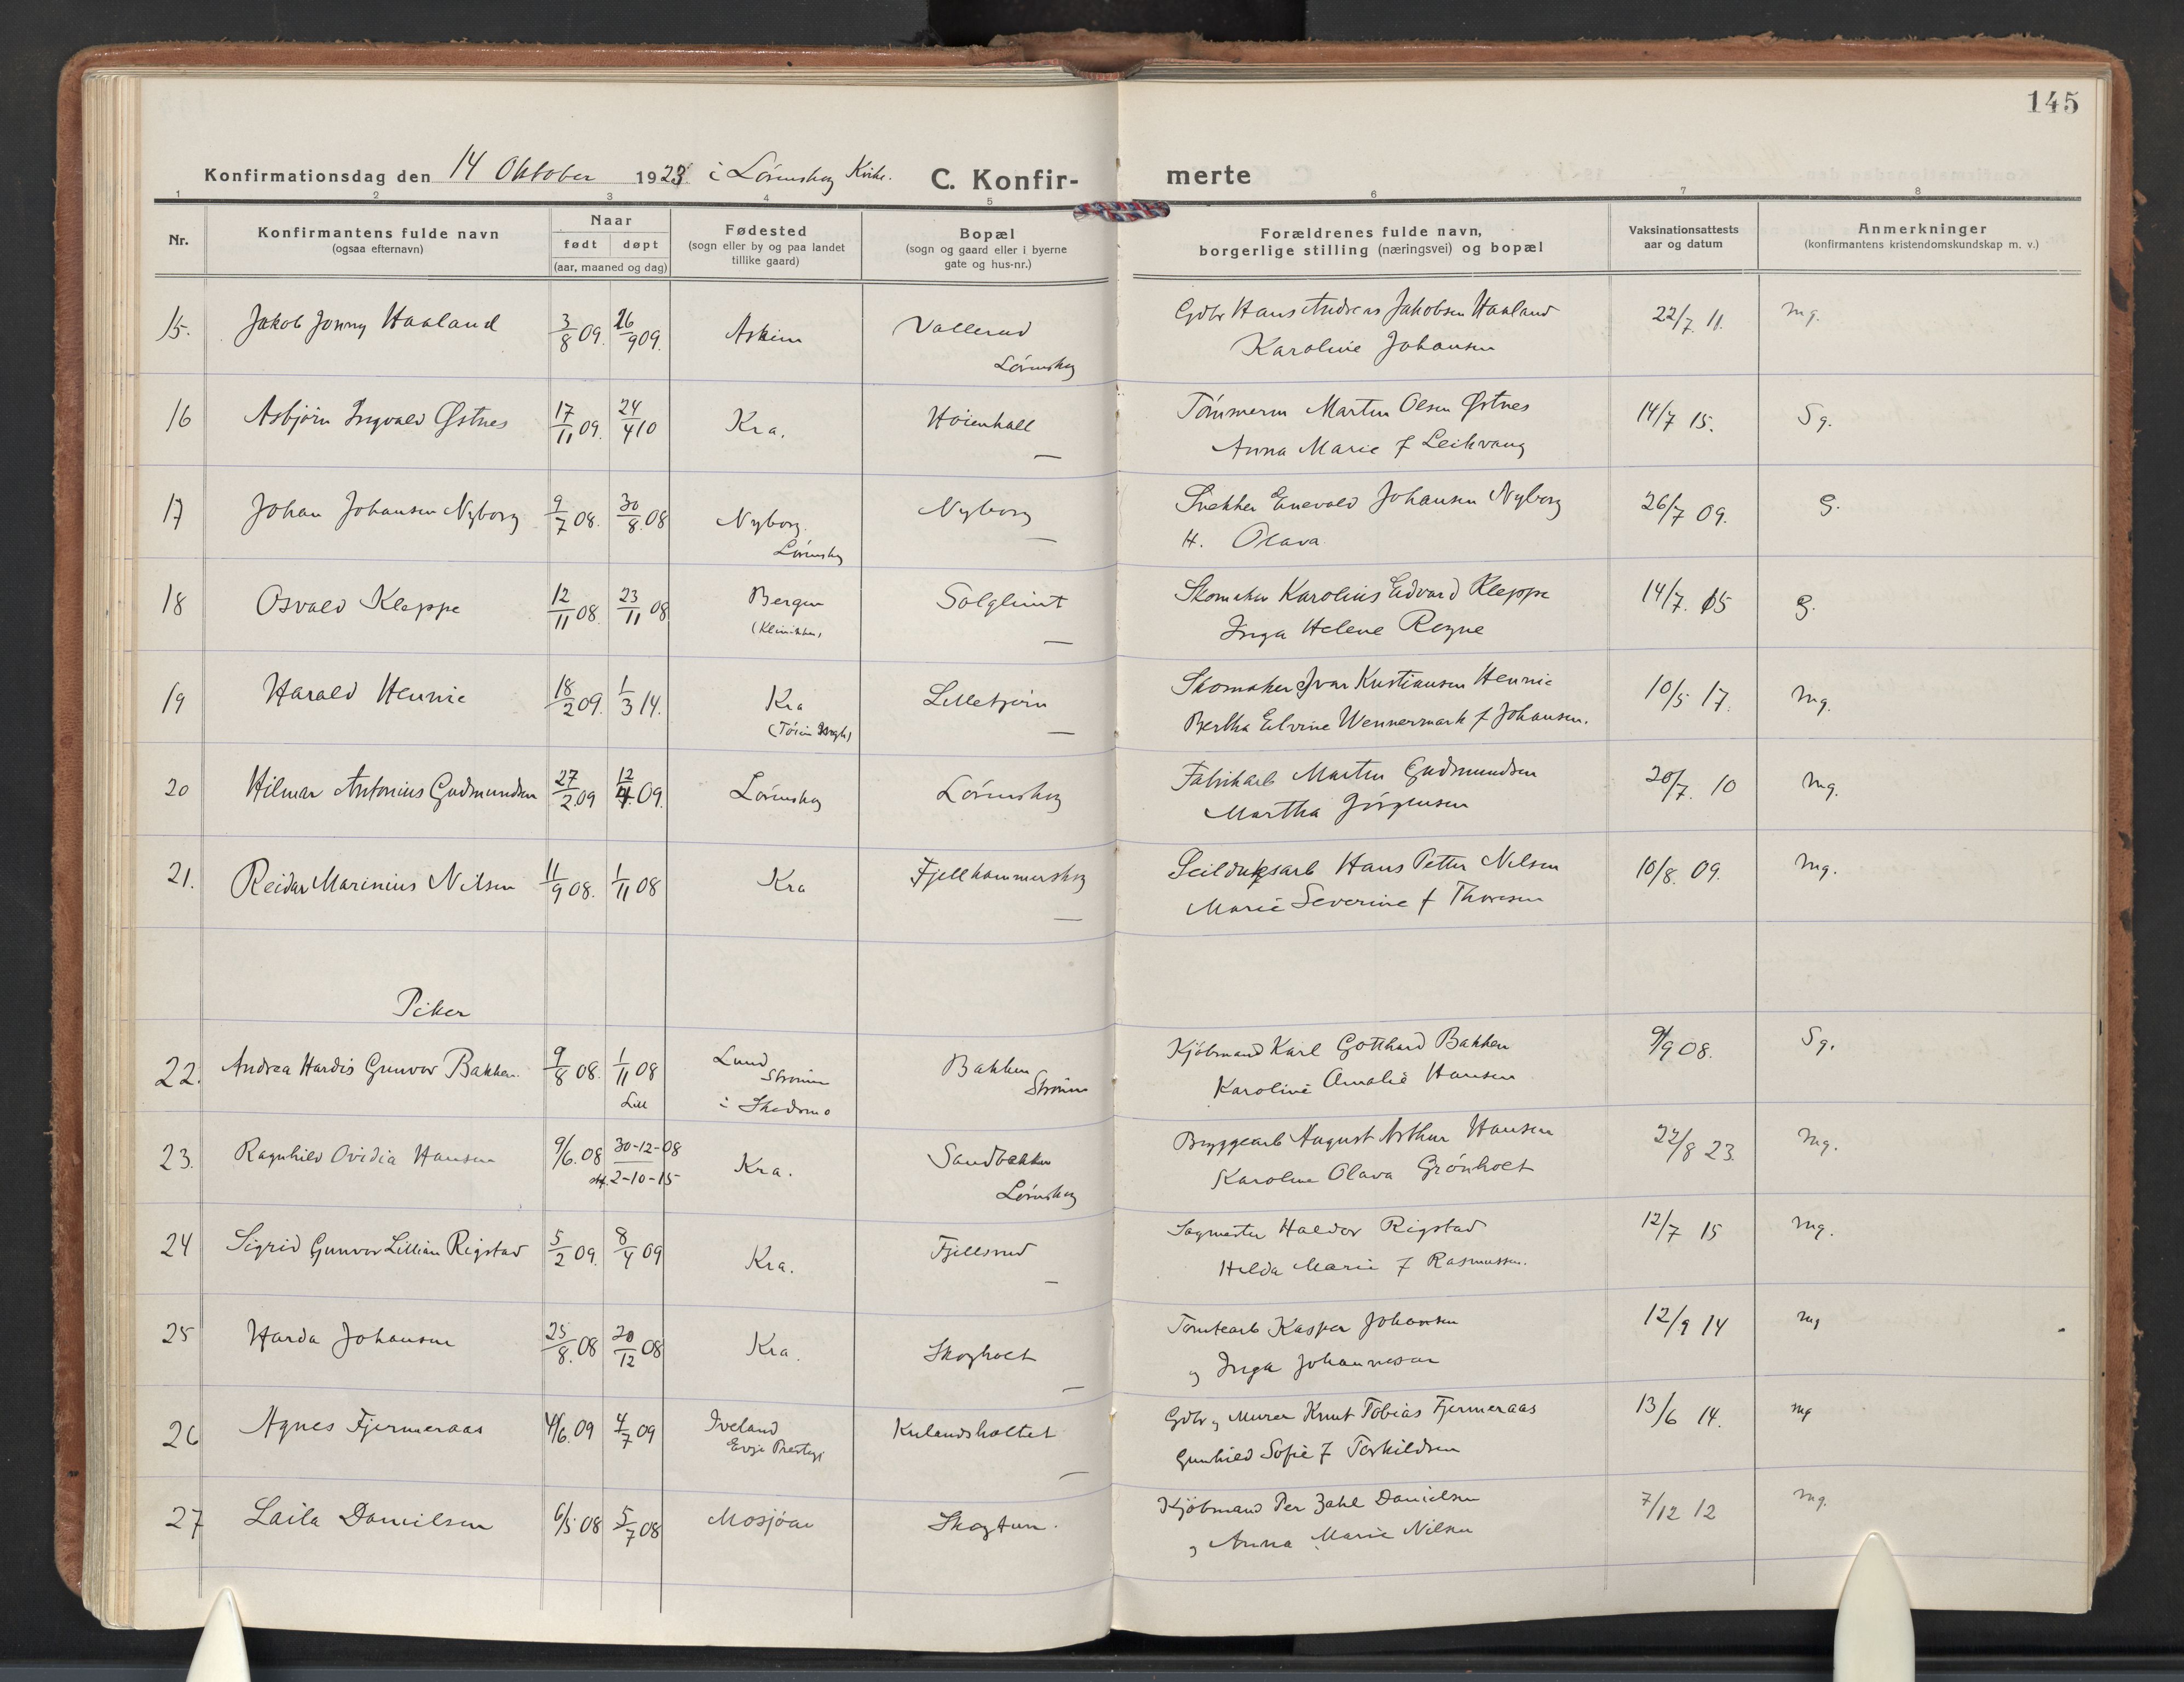 145
Konfirmationsdag den 14 Oktober 1923 i Lørenskog Kirke. C. Konfir- merte
1 2 3 4 5 6 7 8
Nr.
Konfirmantens fulde navn
(ogsaa efternavn)
Naar
født døpt
(aar, maaned og dag)
Fødested
(sogn eller by og paa landet
tillike gaard)
Bopæl
(sogn og gaard eller i byerne
gate og hus-nr.)
Forældrenes fulde navn,
borgerlige stilling (næringsvei) og bopæl
Vaksinationsattests
aar og datum
Anmerkninger
(konfirmantens kristendomskundskap m. v.)
15. Jakob Jonny Haaland 3/8 09. 26/9 09. Askim Vallerud Gdbr Hans Andreas Jakobsen Haaland 22/7. 11. Mg.
Lørenskog Karoline Johansen
16 Asbjørn Ingvald Østnes 17/11 09. 24/4 10 Kra. Høienhall Tømmerm Martin Olsen Østnes 14/7 15. Sg.
— Anna Marie f Leikvang
17 Johan Johansen Nyborg 9/7 08. 30/8. 08 Nyborg. Nyborg Snekker Enevald Johansen Nyborg 26/7 09. G.
Lørenskog — H. Olava
18 Osvald Kleppe 12/11 08. 23/11 08 Bergen Solglimt Skomaker Karolius Edvard Kleppe 14/7. 15 G.
(Klinikken) — Inga Helene Rogne
19 Harald Hennie 18/2 09. 1/3 14. Kra Lilletjern Skomaker Ivar Kristiansen Hennie 10/5 17. Mg.
— Bertha Elvine Wennermark f Johansen.
20 Hilmar Antonius Gudmundsen 27/2. 09 12/4. 09. Lørenskog Lørenskog Fabrikarb Martin Gudmundsen 20/7. 10 Mg.
Martha Jørgensen
21. Reidar Marinius Nilsen 11/9 08. 1/11 08 Kra Fjellhammerskog Seilduksarb Hans Petter Nilsen 10/8. 09. Mg.
— Marie Severine f Thoresen
Piker
22. Andrea Hardis Gunvor Bakken 9/8 08. 1/11 08 Lund Bakken Kjøbmand Karl Gotthard Bakken 9/9 08. Sg.
Lill Strømm i Skedsmo Strømm Karoline Amalie Hansen
23. Ragnhild Ovidia Hansen 9/6. 08 30-12-08 Kra. Sandbakken Bryggearb August Arthur Hansen 22/8 23. Mg.
2-10-15 Lørenskog Karoline Olava Grønholt
24 Sigrid Gunvor Lillian Rigstad 5/2 09. 8/4 09 Kra. Fjellsrud Sagmester Haldor Rigstad 12/7 15 Mg.
— Hilda Marie f Rasmussen.
25 Harda Johansen 25/8. 08 20/12 08 Kra. Skogholt Tomtearb Kasper Johansen 12/9 14 Mg
— og Inga Johannessen
26 Agnes Fjermeraas 4/6. 09 4/7 09 Iveland Kulandsholtet Gdbr og Murer Knut Tobias Fjermeraas 13/6 14. Mg
Evje Prestegj — Gunhild Sofie f Terkildsen
27 Laila Danielsen 6/5 08 5/7 08 Mosjøen Skogtun. Kjøbmand Per Zahl Danielsen 7/12 12 Mg.
og Anna Marie Nilsen